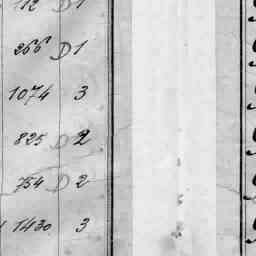 112 D 1
266 D 1
1074 3
825 D 2
754 D 2
1430 3